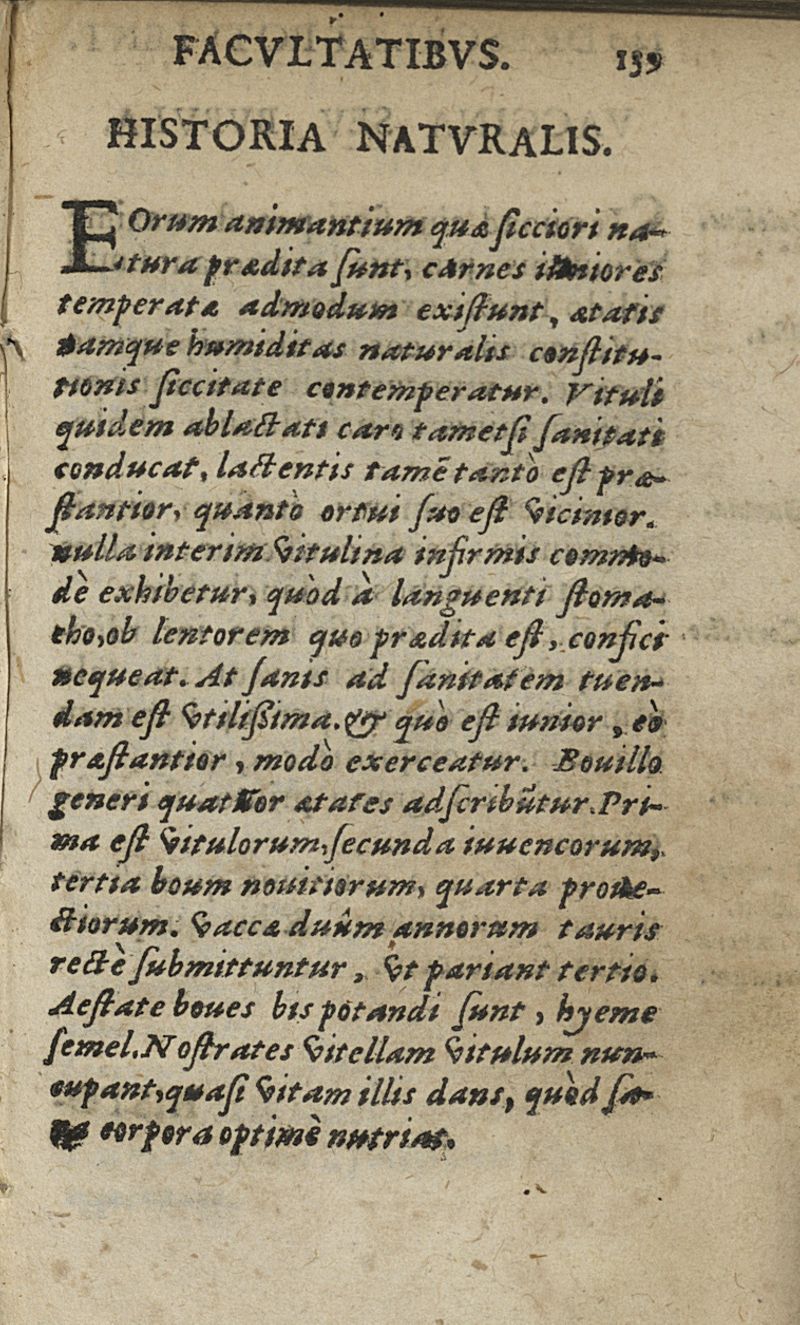 FACVLTATIBVS. 159
HISTORIA NATVRALIS.
EOrum animantium quæ ſicciori na-
tura prædita ſunt, carnes iuniores
temperatæ admodum exiſtunt, ætatis
namque humiditas naturalis conſtitu-
tionis ſiccitate contemperatur. Vituli
quidem ablactati caro tametſi ſanitati
conducat, lactentis tamē tantò eſt præ-
ſtantior, quantò ortui ſuo eſt vicinior.
nulla interim vitulina infirmis commo-
dè exhibetur, quòd à languenti ſtoma-
cho, ob lentorem quo prædita eſt, confici
nequeat. At ſanis ad ſanitatem tuen-
dam eſt vtiliſsima. & quò eſt iunior, eò
præſtantior, modò exerceatur. Bouillo
generi quattuor ætates adſcribūtur. Pri-
ma eſt vitulorum, ſecunda iuuencorum,
tertia boum nouitiorum, quarta proue-
ctiorum. vaccæ duûm annorum tauris
rectè ſubmittuntur, vt pariant tertio.
Aeſtate boues bis potandi ſunt, hyeme
ſemel. Noſtrates vitellam vitulum nun-
cupant, quaſi vitam illis dans, quòd ſa-
na corpora optimè nutriat.